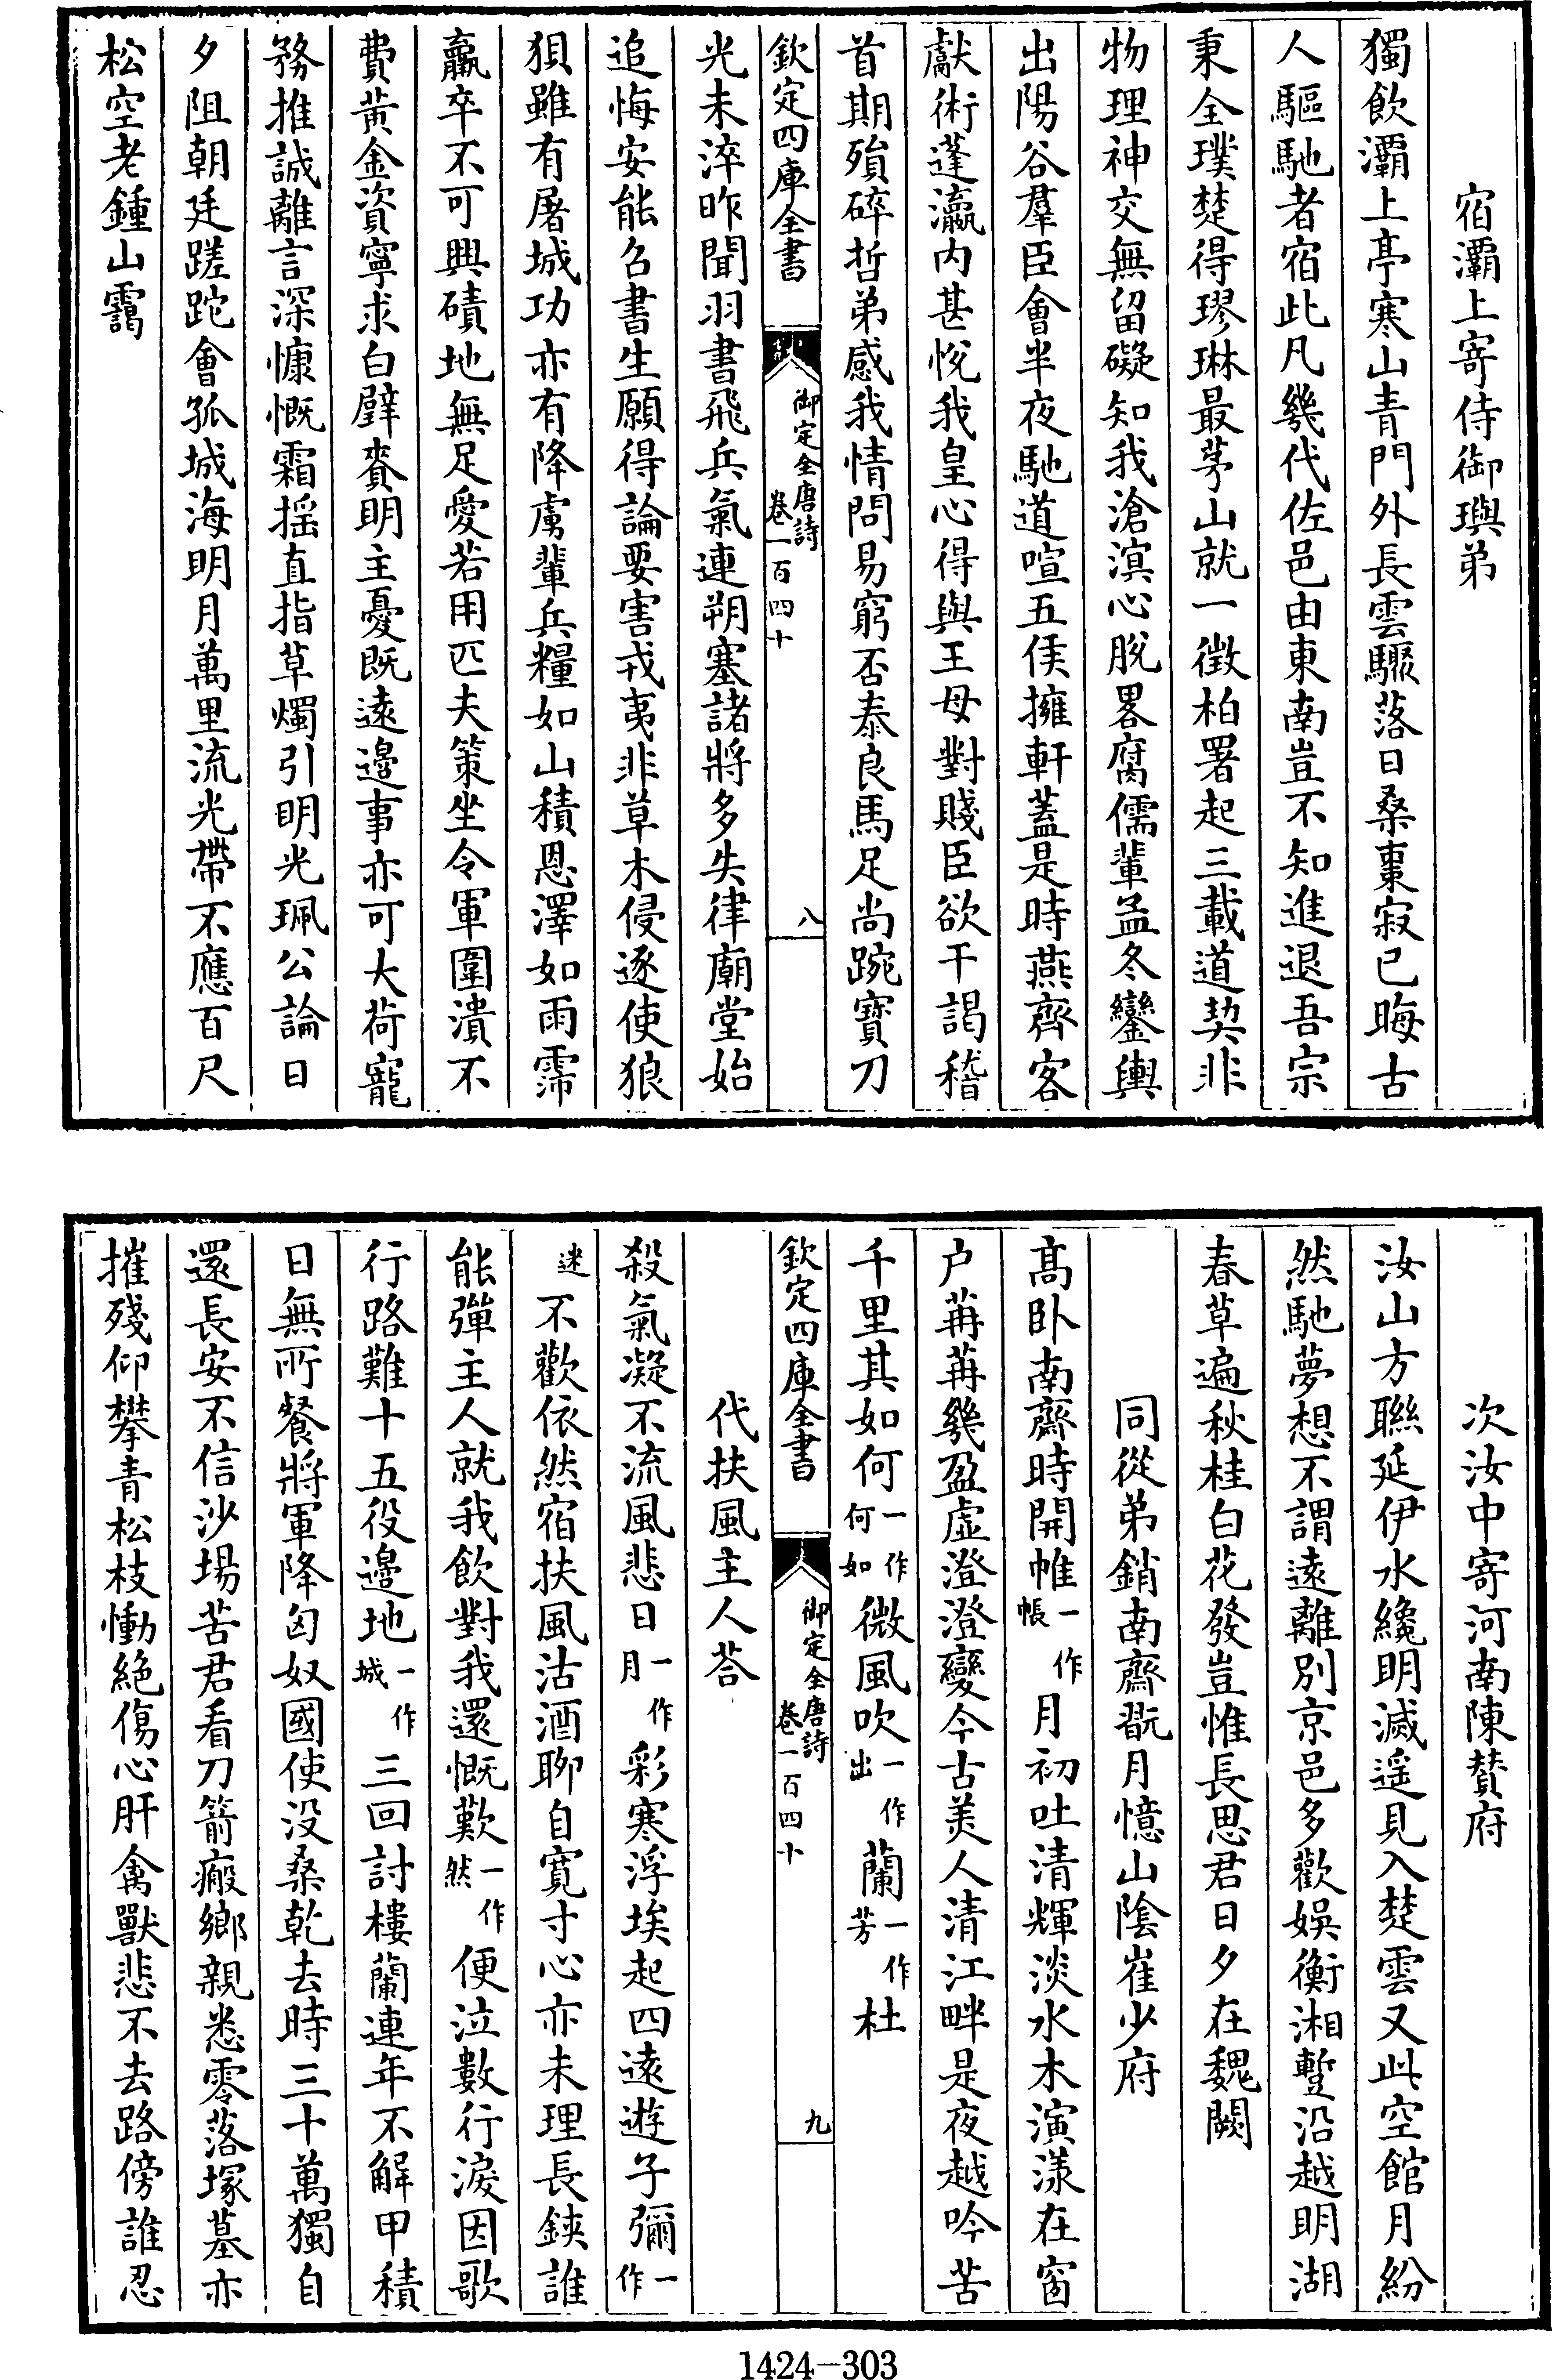 宿灞上寄侍御璵弟
獨飲灞上亭寒山青門外長雲驟落日桑棗寂已晦古
人驅馳者宿此凡幾代佐邑由東南豈不知進退吾宗
秉全璞楚得璆琳最茅山就一徵柏署起三載道契非
物理神交無留礙知我滄溟心脫畧腐儒輩孟冬鑾輿
出陽谷羣臣會半夜馳道喧五侯擁軒蓋是時燕齊客
獻術蓬瀛内甚悅我皇心得與王母對賤臣欲干謁稽
首期殞碎哲弟感我情問易窮否泰良馬足尚踠寳刀
欽定四庫全書
御定全唐詩
卷一百四十
八
光未淬昨聞羽書飛兵氣連朔塞諸將多失律廟堂始
追悔安能召書生願得論要害戎夷非草木侵逐使狼
狽雖有屠城功亦有降虜輩兵糧如山積恩澤如雨霈
羸卒不可興磧地無足愛若用匹夫策坐令軍圍潰不
費黃金資寧求白璧賚明主憂既遠邊事亦可大荷寵
務推誠離言深慷慨霜揺直指草燭引明光珮公論日
夕阻朝廷蹉跎會孤城海明月萬里流光帶不應百尺
松空老鍾山靄
次汝中寄河南陳贊府
汝山方聯延伊水纔明滅遥見入楚雲又此空館月紛
然馳夢想不謂遠離別京邑多歡娛衡湘蹔沿越明湖
春草遍秋桂白花發豈惟長思君日夕在魏闕
同從弟銷南齋翫月憶山陰崔少府
髙卧南齋時開帷一作帳月初吐清輝淡水木演漾在窗
户苒苒幾盈虛澄澄變今古美人清江畔是夜越吟苦
千里其如何一作如何微風吹一作出蘭一作芳杜
欽定四庫全書
御定全唐詩
卷一百四十
九
代扶風主人荅
殺氣凝不流風悲日一作月彩寒浮埃起四遠遊子彌一作
迷不歡依然宿扶風沽酒聊自寛寸心亦未理長鋏誰
能彈主人就我飲對我還慨歎一作然便泣數行淚因歌
行路難十五役邊地一作城三回討樓蘭連年不解甲積
日無所餐將軍降匈奴國使没桑乾去時三十萬獨自
還長安不信沙場苦君看刀箭瘢鄉親悉零落塚墓亦
摧殘仰攀青松枝慟絶傷心肝禽獸悲不去路傍誰忍
1424-303